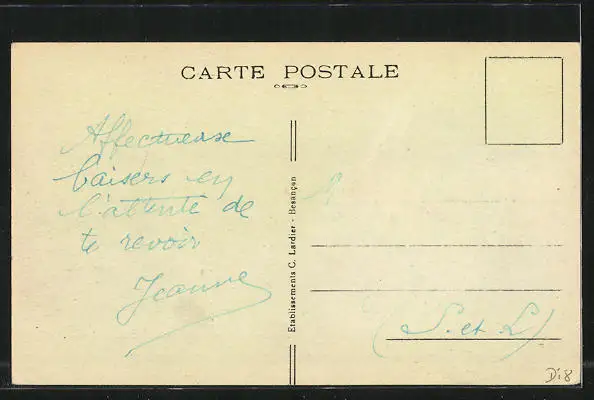 CARTE POSTALE
Affectueuse
baisers en
l'attente de
te revoir
Jeanne
Etablissements C. Lardier - Besançon
(S. et L)
D18